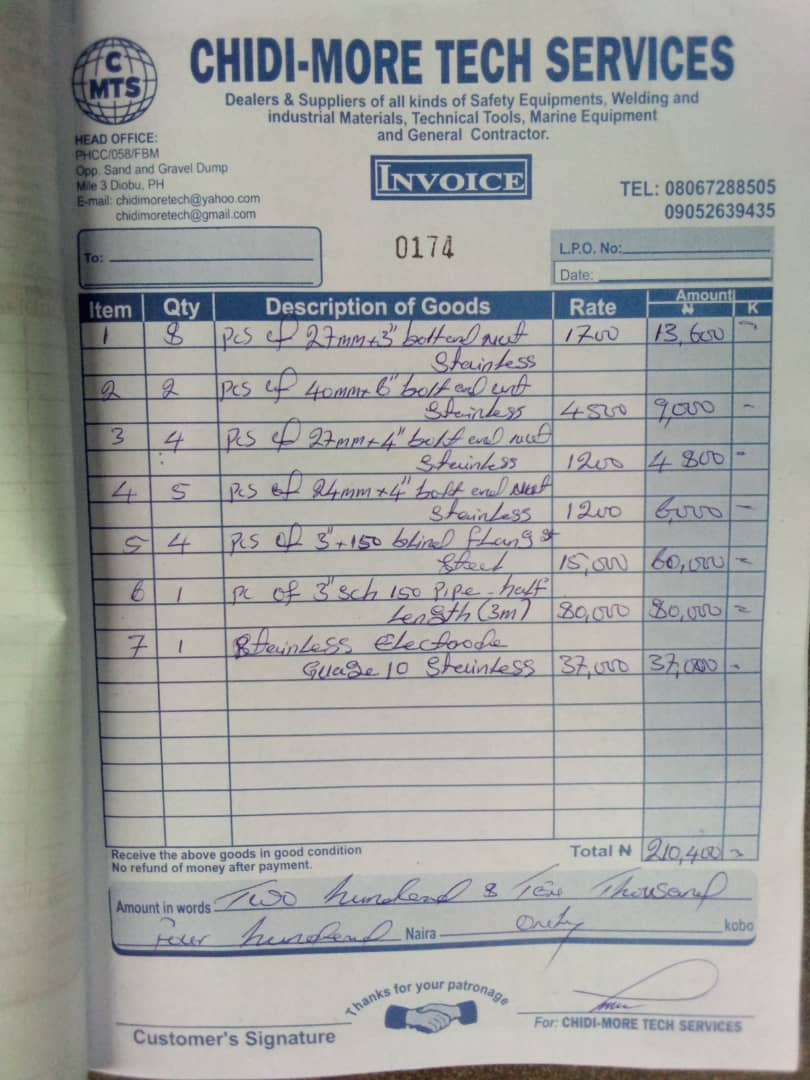 C
MTS
CHIDI-MORE TECH SERVICES
Dealers & Suppliers of all kinds of Safety Equipments, Welding and
industrial Materials, Technical Tools, Marine Equipment
and General Contractor.
HEAD OFFICE:
PHCC/058/FBM
Opp. Sand and Gravel Dump
Mile 3 Diobu, PH
E-mail: chidimoretech@yahoo.com
chidimoretech@gmail.com
INVOICE
TEL: 08067288505
09052639435
To:
0174
L.P.O. No:
Date:
Item Qty Description of Goods Rate Amount
₦ K
1 8 pcs of 27mm+3" bolt and nut 1700 13,600 -
Stainless
2 2 pcs of 40mm+6" bolt and nut
Stainless 4500 9,000 -
3 4 pcs of 27mm+4" bolt and nut
Stainless 1200 4800 -
4 5 pcs of 24mm+4" bolt and nut
Stainless 1200 6,000 -
5 4 pcs of 3"+150 blind flang
Steel 15,000 60,000 =
6 1 pc of 3"sch 150 Pipe - half
Length (3m) 80,000 80,000 =
7 1 Stainless Electrode
Guage 10 Stainless 37,000 37,000 -
Receive the above goods in good condition
No refund of money after payment.
Total ₦ 210,400 =
Amount in words Two hundred & Ten Thousand
Four hundred Naira Only kobo
Thanks for your patronage
Customer's Signature
For: CHIDI-MORE TECH SERVICES